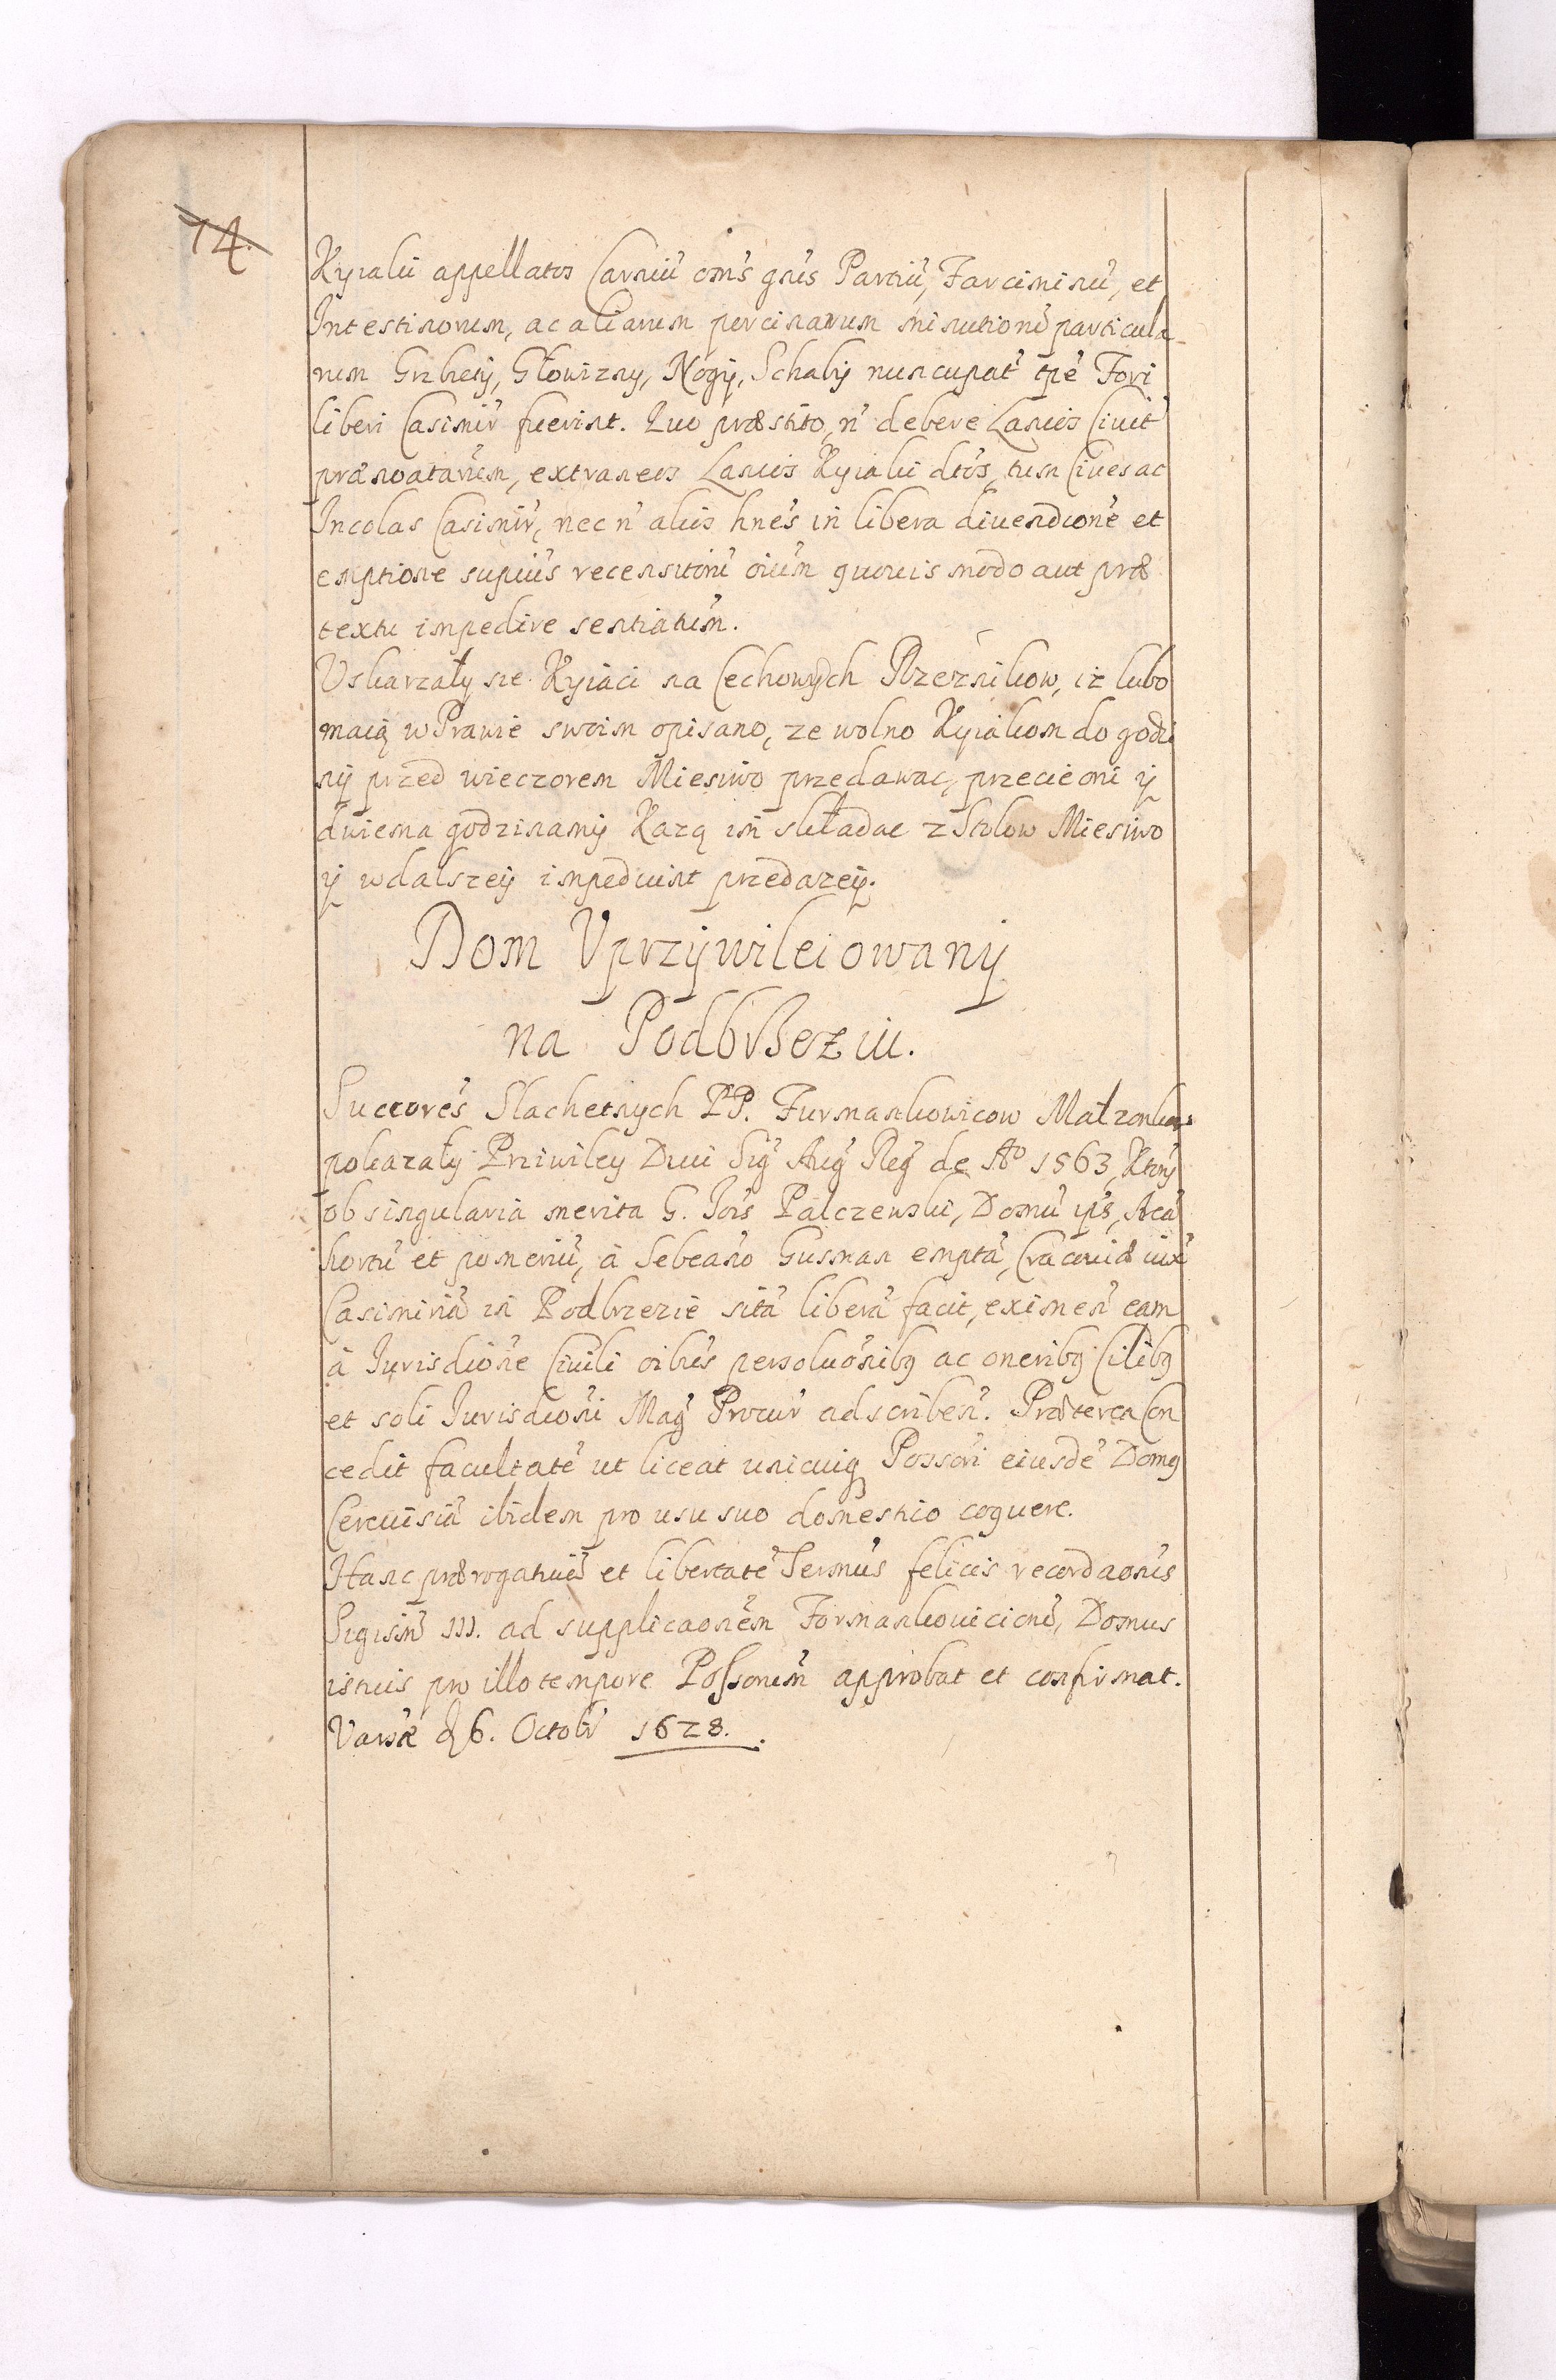 14.
Kyialii appellatos Carniũ om̃s gñis Partiũ, Farciminũ, et
Intestinorum, ac aliarum porcinarum minutionũ particula-
rum Grzbety, Głowizny, Nogÿ, Schabÿ nuncupat̃ tp̃e Fori
liberi Casimir̃ fuerint. Quo præstito, ñ debere Lanios Ciuit̃
prænoatarũm, extraneos Lanios Kyialii dt̃os, tum Ciues ac
Incolas Casimir̃, nec ñ alios hñes in libera diuend̃cone et
emptione supiũs recensitorũ oiũm quouis modo aut præ
textu impedire sentiatũm.
Vskarzały sie Kyiaci na Cechowych Rzeznikow, iz lubo
maią w Prawie swoim opisano, ze wolno Kyiakom do godzi
nÿ przed wieczorem Miesiwo przedawac, przecie oni ÿ
dwiema godzinamÿ Kazą im składac z Stolow Miesiwo
ÿ w dalszeÿ impediunt przedazeÿ.
Dom Vprzÿwileiowanÿ
na Podbrzeziu.
Succores̃ Slachetnych PP. Furmankowicow Małzonkow
pokazałÿ Priwiley Diui Sig̃ Aug̃ Reg̃ de Aº 1563, Ktorÿ
ob singularia merita G. Joi̓s Palczewski, Domũ ip̃s, Aeã
hortũ et pomeriũ, à Sebeano Gusman emptã, Cracouiæ iux̃
Casimiriã in Podbrzezie sitã liberã facit, eximeñ eam
à Jurisdione Ciuili oibũs persoluõnibꝰ ac oneribꝰ Cilibꝰ
et soli Jurisdiõni Mag̃ Procur̃ adscribeñ. Præterea Con
cedit facultatẽ ut liceat unicuiq Possori eiusdẽ Domꝰ
Cereuisiã ibidem pro usu suo domestico coquere.
Hanc prærogatiuã et libertatẽ Sermũs felicis recordaõnis
Sigism̃ III. ad supplicaonẽm Formankouicionũ, Domus
istius pro illo tempore Possorũm approbat et confirmat.
Varsæ d 6. Octobr̃ 1628.